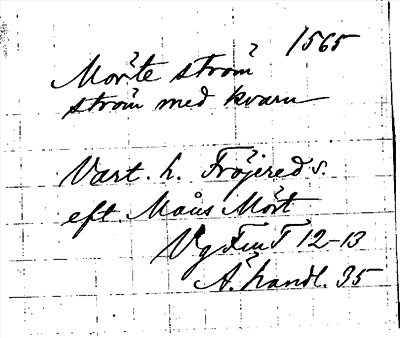 1565
Mörte ström
ström med kvarn
Vart. h. Fröjered s.
eft. Måns Mört
Vg FmT 12-13
Ä. handl. 35